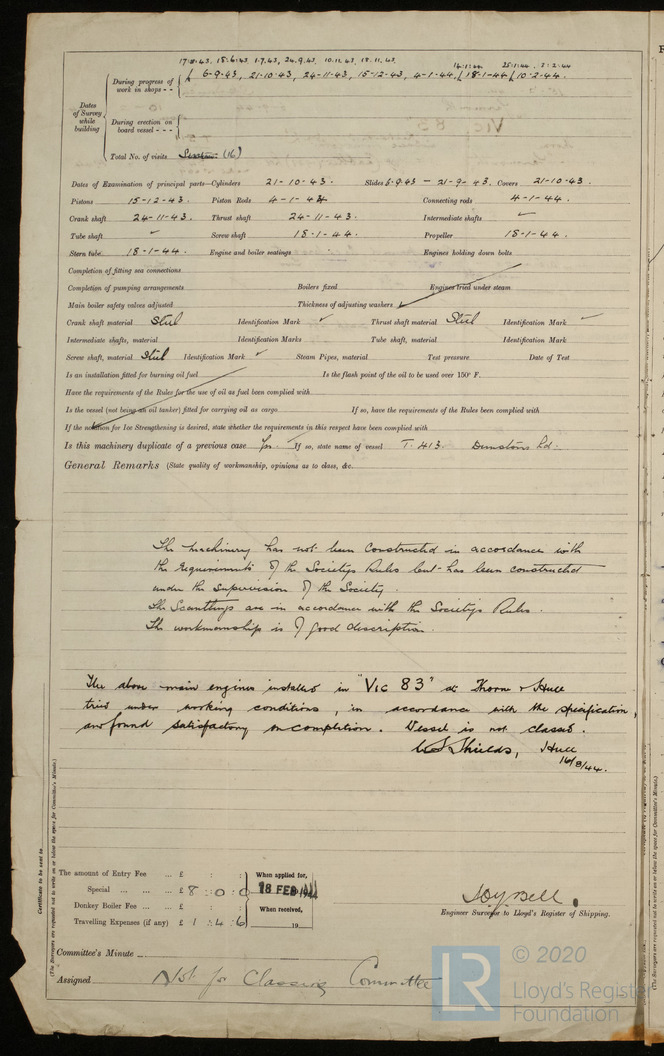 17.8.43, 18.6.43, 1.7.43, 24.9.43, 10.11.43, 18.11.43.
14.1.44 25.1.44, 2.2.44
During progress of work in shops - - 6-9-43, 21-10-43, 24-11-43, 15-12-43, 4-1-44, 18-1-44 10-2-44.
Dates of Survey while building
During erection on board vessel - - -
Total No. of visits (16)
Dates of Examination of principal parts—Cylinders 21-10-43. Slides 6.9.43 - 21-9-43. Covers 21-10-43.
Pistons 15-12-43. Piston Rods 4-1-44 Connecting rods 4-1-44.
Crank shaft 24-11-43. Thrust shaft 24-11-43. Intermediate shafts ✓
Tube shaft ✓ Screw shaft 18-1-44. Propeller 18-1-44.
Stern tube 18-1-44. Engine and boiler seatings Engines holding down bolts
Completion of fitting sea connections
Completion of pumping arrangements Boilers fixed Engines tried under steam
Main boiler safety valves adjusted Thickness of adjusting washers
Crank shaft material Steel Identification Mark ✓ Thrust shaft material Steel Identification Mark ✓
Intermediate shafts, material Identification Marks Tube shaft, material Identification Mark
Screw shaft, material Steel Identification Mark ✓ Steam Pipes, material Test pressure Date of Test
Is an installation fitted for burning oil fuel Is the flash point of the oil to be used over 150° F.
Have the requirements of the Rules for the use of oil as fuel been complied with
Is the vessel (not being an oil tanker) fitted for carrying oil as cargo If so, have the requirements of the Rules been complied with
If the notation for Ice Strengthening is desired, state whether the requirements in this respect have been complied with
Is this machinery duplicate of a previous case Yes. If so, state name of vessel T. 413. Dunstons Ld.
General Remarks (State quality of workmanship, opinions as to class, &c.
The machinery has not been constructed in accordance with
the requirements of the Societys Rules but has been constructed
under the supervision of the Society.
The Scantlings are in accordance with the Societys Rules.
The workmanship is of good description.
The above main engines installed in "Vic 83" at Thorne & Hull
tried under working conditions, in accordance with the specification,
and found satisfactory on completion. Vessel is not classed.
Shields, Hull
16/8/44.
The amount of Entry Fee ... £ : :
Special ... ... ... £ 8 : 0 : 0
Donkey Boiler Fee ... £ : :
Travelling Expenses (if any) £ 1 : 4 : 6
When applied for,
18 FEB 1944
When received,
19
Bell.
Engineer Surveyor to Lloyd's Register of Shipping.
Committee's Minute
Assigned Not for Classing Committee
Certificate to be sent to
(The Surveyors are requested not to write on or below the space for Committee's Minute.)
LR
© 2020
Lloyd's Register
Foundation